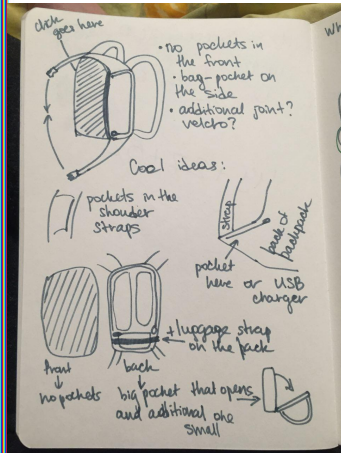 click
goes here
• no pockets in
the front
• bag-pocket on
the side
• additional joint?
velcro?
Cool ideas:
pockets in the
shouder
straps
strap
back of
backpack
pocket
here or USB
charger
+luggage strap
on the back
front
no pockets
back
big pocket that opens
and additional one
small
Wh